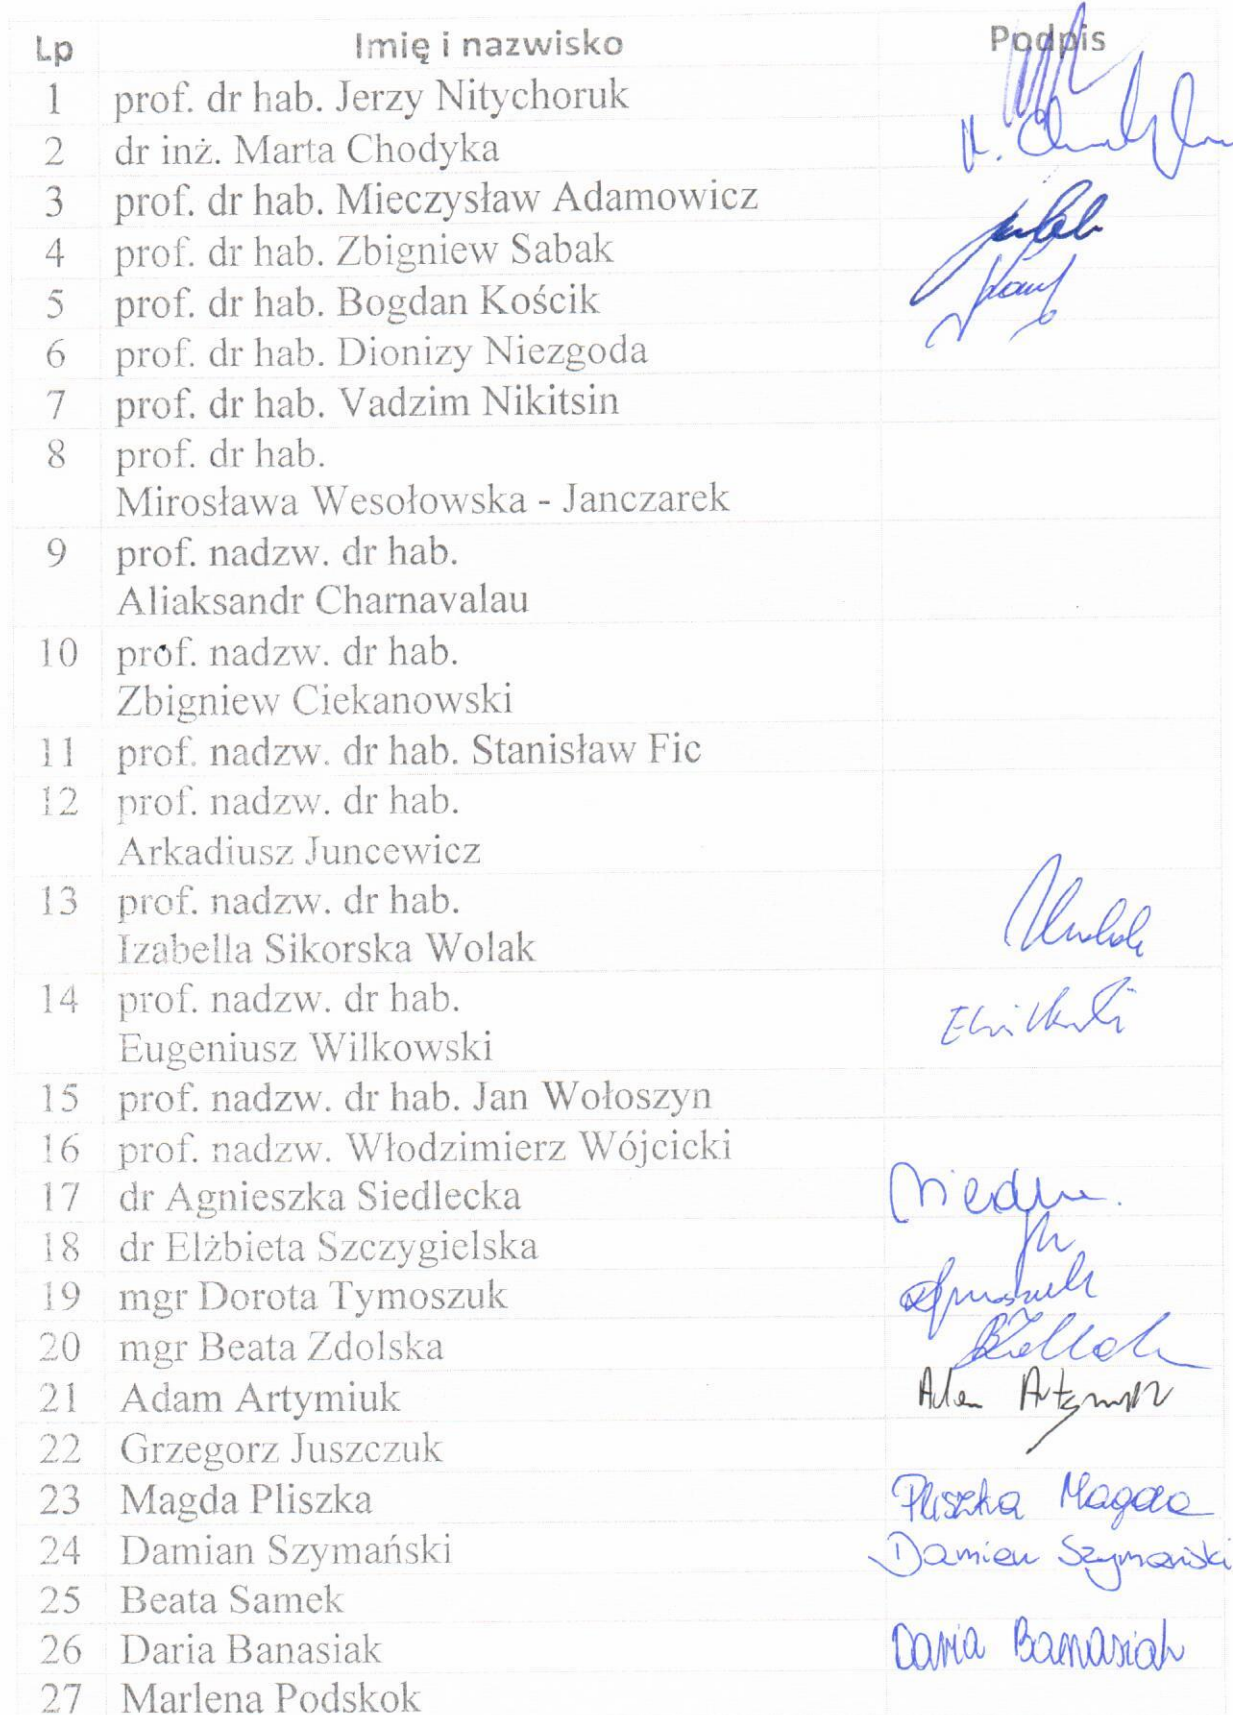 Lp Imię i nazwisko Podpis
1 prof. dr hab. Jerzy Nitychoruk
2 dr inż. Marta Chodyka
3 prof. dr hab. Mieczysław Adamowicz
4 prof. dr hab. Zbigniew Sabak
5 prof. dr hab. Bogdan Kościk
6 prof. dr hab. Dionizy Niezgoda
7 prof. dr hab. Vadzim Nikitsin
8 prof. dr hab.
Mirosława Wesołowska - Janczarek
9 prof. nadzw. dr hab.
Aliaksandr Charnavalau
10 prof. nadzw. dr hab.
Zbigniew Ciekanowski
11 prof. nadzw. dr hab. Stanisław Fic
12 prof. nadzw. dr hab.
Arkadiusz Juncewicz
13 prof. nadzw. dr hab.
Izabella Sikorska Wolak
14 prof. nadzw. dr hab.
Eugeniusz Wilkowski
15 prof. nadzw. dr hab. Jan Wołoszyn
16 prof. nadzw. Włodzimierz Wójcicki
17 dr Agnieszka Siedlecka
18 dr Elżbieta Szczygielska
19 mgr Dorota Tymoszuk
20 mgr Beata Zdolska
21 Adam Artymiuk Adam Artymiuk
22 Grzegorz Juszczuk
23 Magda Pliszka Pliszka Magda
24 Damian Szymański Damian Szymański
25 Beata Samek
26 Daria Banasiak Daria Banasiak
27 Marlena Podskok